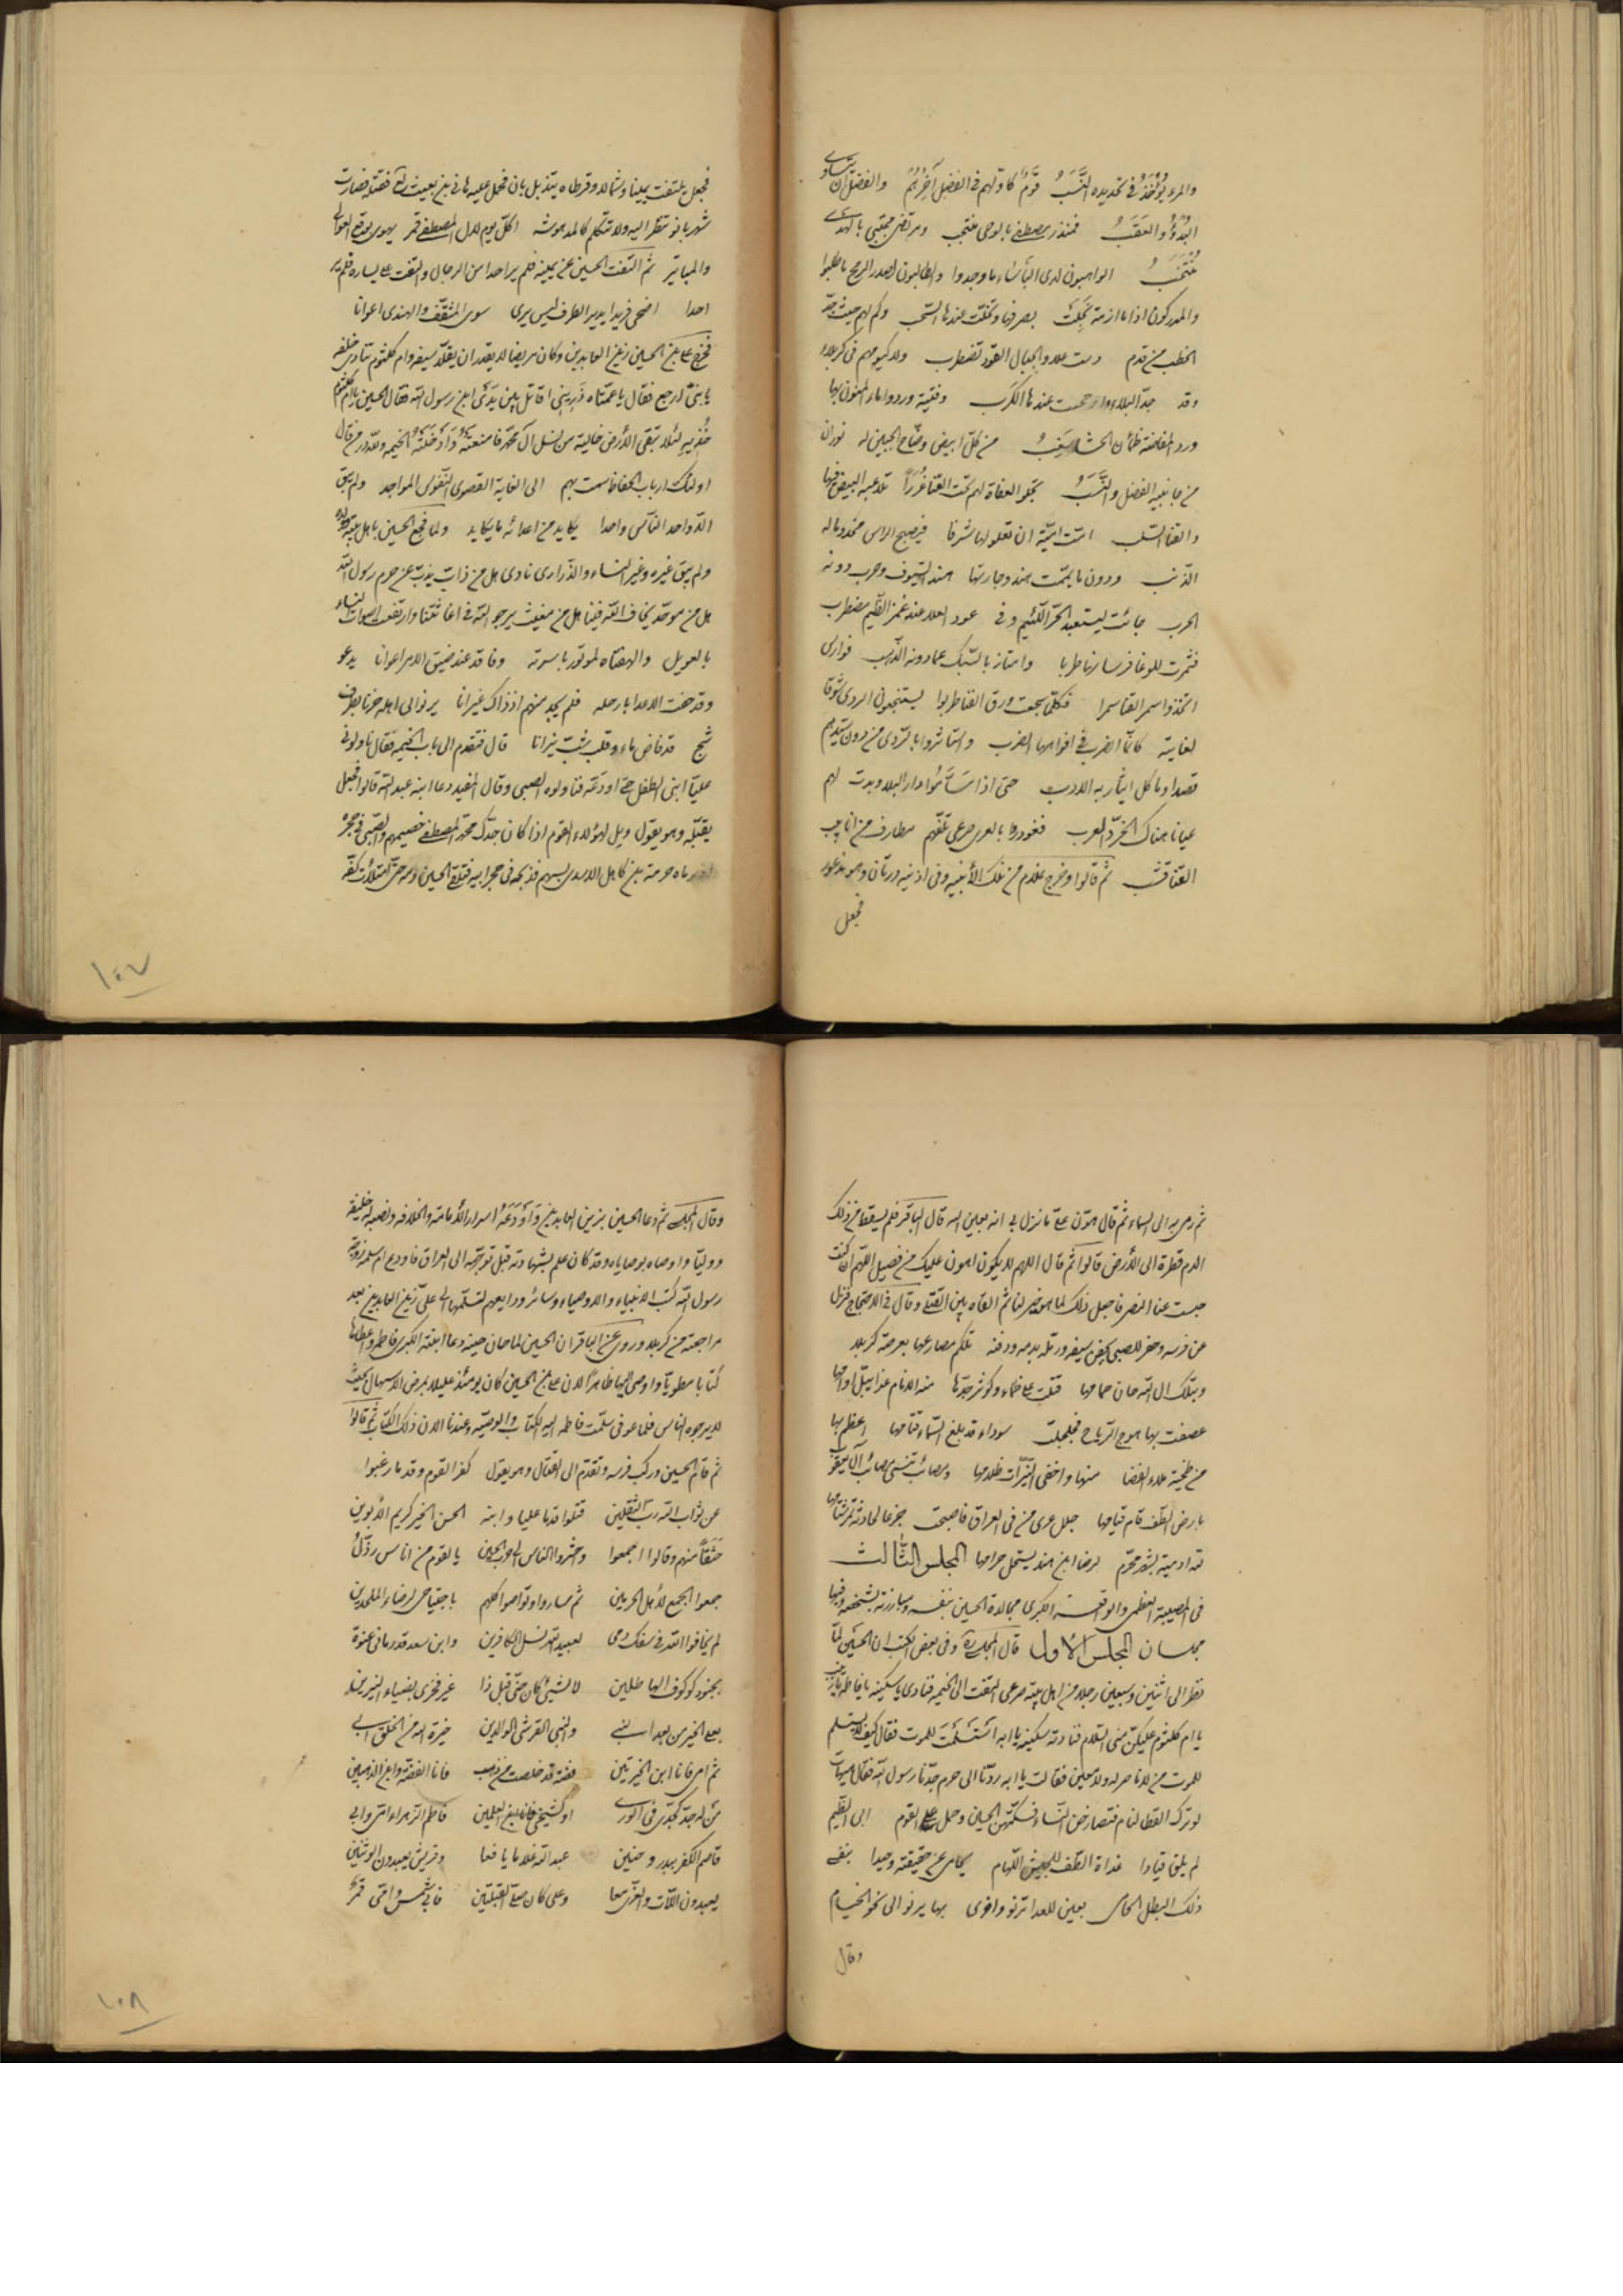 والمرء يؤخذ في تحديده النسب قوم كاولهم في الفضل آخرهم والفضل ان يتساوى
البدؤ والعقب فمنذر مصطفى بالوحي منتجب ومرتضى مجتبى بالهدى
منتخب الواهبون لدى البأساء ما وجدوا والطالبون لصدر الرمح ما طلبوا
والمدركون اذا ما ازمة بصرفها وتخلت عندها السحب وكم لهم حيث جد
الخطب من قدم رست علا والجبال القود تضطرب ولا كيومهم في كربلاء
وقد جد البلاء وارجحنت عندها الكرب وفتية وردوا ماء المنون بها
ورد المفاضة ظمآن الحشا سغب من كل ابيض وضاح الجبين له نوران
من جانبيه الفضل والنسب تجلو العفاة لهم تحت القنا غررا تلاعبه البيض فيها
والقنا السلب امت امية ان تعلو لها شرفا فيصبح الراس مخدوما له
الذنب ودون ما يممت هند وجارتها هند السيوف وحرب دونه
الحرب جائت ليستعبد الحر اللئيم وفي عود العلا عند غمز الضيم مضطرب
فشمرت للوغا فرسانها طربا وامتاز بالسبك عما دونه الذهب فوارس
اتخذوا سمر القنا سمرا فكلما سجعت ورق القنا طربوا يستنجعون الردى شوقا
لغايته كانما الضرب في افواهها الضرب واستاثروا بالردى من دون سيدهم
قصدا وما كل ايثار به الادب حتى اذا سئموا دار البلا وبدت لهم
عيانا هناك الخرد العرب فغودروا بالعرى صرعى تلفهم مطارف من انابيب
القنا قشب ثم قالوا وخرج غلام من تلك الأبنية وفي اذنيه درتان وهو مذعور
فجعل
فجعل يلتفت يمينا وشمالا وقرطاه يتذبذبان فحمل عليه هاني بن بعيث فقتله فصارت
شهربانو تنظر اليه ولا تتكلم كالمدهوشة اكل يوم لال المصطفى قمر يهوى بوقع العوالي
والمباتير ثم التفت الحسين عن يمينه فلم ير احدا من الرجال والتفت عن يساره فلم ير
احدا اضحى فريدا يدير الطرف ليس يرى سوى المثقف والهندي اعوانا
فخرج علي بن الحسين زين العابدين وكان مريضا لا يقدر ان يقل سيفه وام كلثوم تنادى خلفه
يا بنى ارجع فقال يا عمتاه ذريني اقاتل بين يدى ابن رسول الله فقال الحسين يا ام كلثوم
خذيه لئلا تبقى الأرض خالية من نسل آل محمد فامنعته وادخلته الخيمه ولله در من قال
اولئك ارباب الحفاظ سمت بهم الى الغاية القصوى النفوس المواجد ولم يبق
الا واحد الناس واحدا يكابد من اعدائه ما يكابد ولما فجع الحسين باهل بيته وولده
ولم يبق غيره وغير النساء والذرارى نادى هل من ذاب يذب عن حرم رسول الله
هل من موحد يخاف الله فينا هل من مغيث يرجو الله في اغاثتنا وارتفعت اصوات النساء
بالعويل والهفتاه لموتور باسرته وفاقد عند ضيق الامر اعوانا يدعو
وقد حفت الاعدا بارحله فلم يجد منهم اذ ذاك غيرانا يرنو الى اهله حزنا بطرف
شج قد فاض ماء وقلب شب نيرانا قال فتقدم الى باب الخيمة فقال ناولوني
عليا ابني الطفل حتى اودعه فناولوه الصبي وقال المفيد دعا ابنه عبد الله قالوا فجعل
يقبله وهو يقول ويل لهؤلاء القوم اذا كان جدك محمد المصطفى خصيمهم والصبي في حجره
اذ رماه حرملة بن كاهل الاسدي بسهم فذبحه في حجر ابيه فتلقى الحسين دمه حتى امتلأت كفه
١٠٧
ثم رمى به الى السماء ثم قال هون علي ما نزل بي انه بعين الله قال الباقر فلم يسقط من ذلك
الدم قطرة الى الأرض قالوا ثم قال اللهم لا يكون اهون عليك من فصيل اللهم ان كنت
حبست عنا النصر فاجعل ذلك لما هو خير لنا ثم القاه بين القتلى وقال في الاحتجاج فنزل
عن فرسه وحفر للصبي بجفن سيفه ورمله بدمه ودفنه تلكم مصارعها بعرصة كربلا
وبتلك ال الله حان حمامها قتلت على ظماء وكوثر جدها منه الانام غدا يبل اوامها
عصفت بها هوج الرياح فجلجلت سوداء قد بلغ السماء قتامها اعظم بها
من طخية ملاء الفضا منها واخفى النيرات ظلامها ومصائب تنسى مصائب آل يعقوب
بارض الطف قام قيامها جلل عرى من في العراق فاصبحت جزعا لحادثه تمر شئامها
لله ادمية بشهر محرم لرضا ابن هند يستحل حرامها المجلس الثالث
في المصيبة العظمى والواقعة الكبرى مجالدة الحسين بنفسه ومبارزته بشخصه وفيها
مجلسان المجلس الأول قال المجلسي وفي بعض الكتب ان الحسين لما
نظر الى اثنين وسبعين رجلا من اهل بيته صرعى التفت الى الخيمة فنادى يا سكينه يا فاطمه يا زينب
يا ام كلثوم عليكن منى السلام فنادته سكينه يا ابه استسلمت للموت فقال كيف لا يستسلم
للموت من لا ناصر له ولا معين فقالت يا ابه ردنا الى حرم جدنا رسول الله فقال هيهات
لو ترك القطا لنام فتصارخن النساء فسكتهن الحسين وحمل على القوم ابى الضيم
لم يلق قيادا غداة الطف للجيش اللهام يحامى عن حقيقته وحيدا بنفسى
ذلك البطل المحامى بعين للعدا ترنو واخرى بها يرنو الى نحو الخيام
وقال
وقال المجلسي ثم دعا الحسين بزين العابدين واودعه اسرار الأمامة والخلافه ونصبه له خليفة
ووليا واوصاه بوصاياه وقد كان علم بشهادته قبل توجهه الى العراق فاودع ام سلمه زوجة
رسول الله كتب الانبياء والاوصياء وسائر ودايعهم لتسلمها الى علي زين العابدين بعد
مراجعته من كربلا وروى عن الباقر ان الحسين لما حان حينه دعا ابنته الكبرى فاطمه واعطاها
كتابا مطويا واوصى اليها ظاهرا لان علي بن الحسين كان يومئذ عليلا بمرض الاسهال بحيث
لا يرجوه الناس فلما عوفى سلمت فاطمه اليه الكتاب والوصية وعندنا الان ذلك الكتاب ثم قالوا
ثم قام الحسين وركب فرسه وتقدم الى القتال وهو يقول كفر القوم وقدما رغبوا
عن ثواب الله رب الثقلين قتلوا قدما عليا وابنه الحسن الخير كريم الأبوين
حنقا منهم وقالوا اجمعوا واحشروا الناس الى حرب الحسين يا لقوم من اناس رذل
جمعوا الجمع لأهل الحرمين ثم صاروا وتواصوا كلهم باجتياحى لرضاء الملحدين
لم يخافوا الله في سفك دمى لعبيد الله نسل الكافرين وابن سعد قد رمانى عنوة
بجنود كوكوف الهاطلين لا لشيئ كان منى قبل ذا غير فخرى بضياء النيرين
بعلى الخير من بعد النبي والنبي القرشي الوالدين خيرة الله من الخلق ابى
ثم امى فانا ابن الخيرتين فضة قد خلصت من ذهب فانا الفضة وابن الذهبين
من له جد كجدى في الورى او كشيخي فانا ابن العلمين فاطم الزهراء امى وابى
قاصم الكفر ببدر وحنين عبد الله غلاما يافعا وقريش يعبدون الوثنين
يعبدون اللات والعزى معا وعلى كان صلى القبلتين فابى شمس وامى قمر
١٠٨